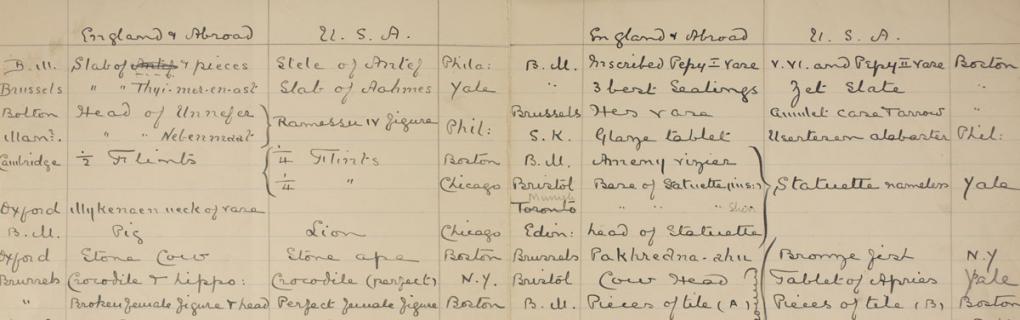 England & Abroad U. S. A. England & Abroad U. S. A.
B.M. Slab of Antef & pieces Stele of Antef Phila: B.M. Inscribed Pepy II vase V. VI. and Pepy II vase Boston
Brussels " " Thyi-mer-en-ast Slab of Aahmes Yale " 3 best Sealings Zet Slate "
Bolton Head of Unnefer Ramessu IV figure Phil: Brussels Hes vase Amulet case Tarrow "
Mam?. " " Nebenmaat S.K. Glaze tablet Usertesen alabaster Phil:
Cambridge 1/2 Flints 1/4 Flints Boston B.M. Ameny vizier
1/4 " Chicago Bristol Base of Statuette (ins:) Statuette nameless Yale
Oxford Mykenaen neck of vase Toronto Munich " " "
B.M. Pig Lion Chicago Edin: head of Statuette
Oxford Stone Cow Stone ape Boston Brussels Pakhredna-ahu Bronze fish N.Y
Brussels Crocodile & hippo: Crocodile (perfect) N.Y. Bristol Cow Head Tablet of Apries Yale
" Broken female figure & head Perfect female figure Boston B.M. Pieces of tile (A) Pieces of tile (B) Boston